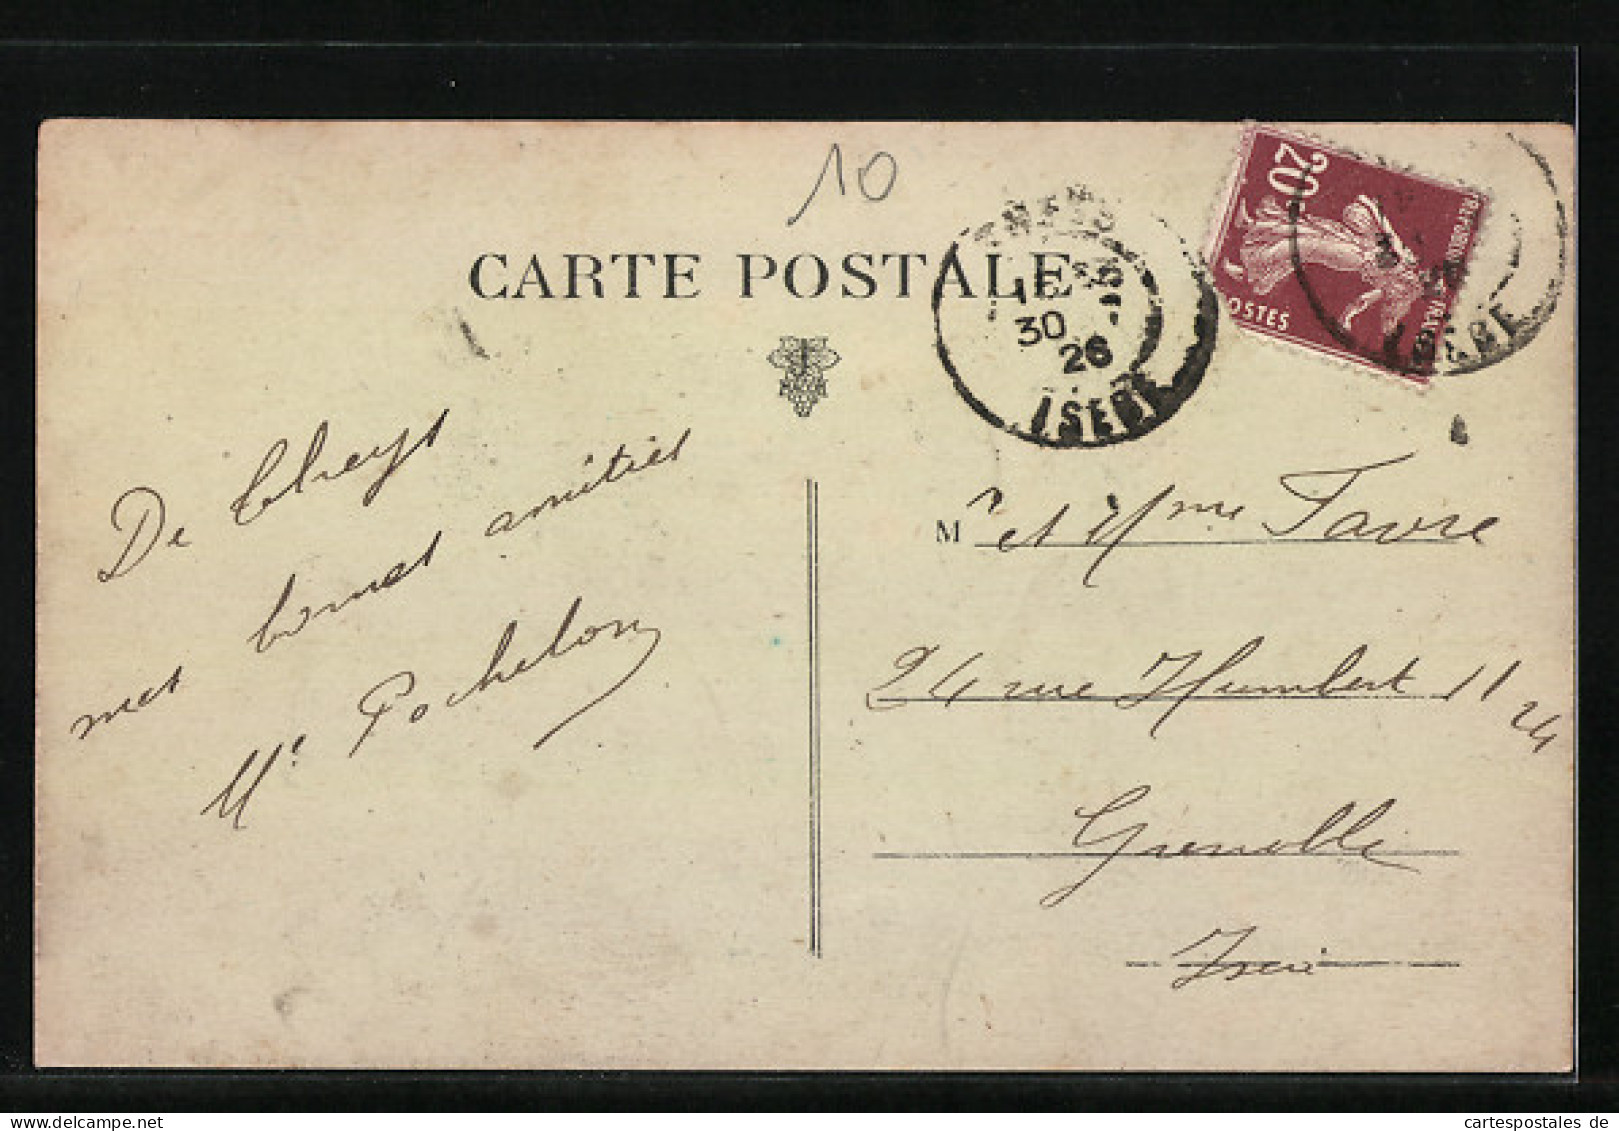 10
CARTE POSTALE
30
26
ISERE
20
POSTES
ISERE
De Theys
mes bonnes amitiés
Me Pochelon
M r et Mme Favre
24 rue Humbert II
24
Grenoble
Isère
cartespostales de